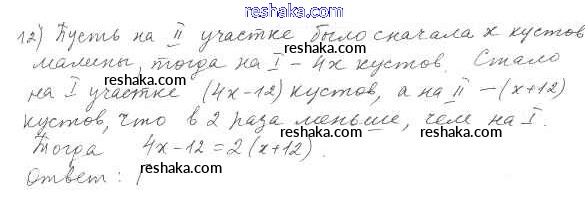 reshaka.com
12) Пусть на II участке было сначала x кустов
малины, тогда на I – 4x кустов. Стало
на I участке (4x-12) кустов, а на II – (x+12)
кустов, что в 2 раза меньше, чем на I.
Тогда 4x-12=2(x+12).
Ответ: 1
reshaka.com
reshaka.com
reshaka.com
reshaka.com
reshaka.com
reshaka.com